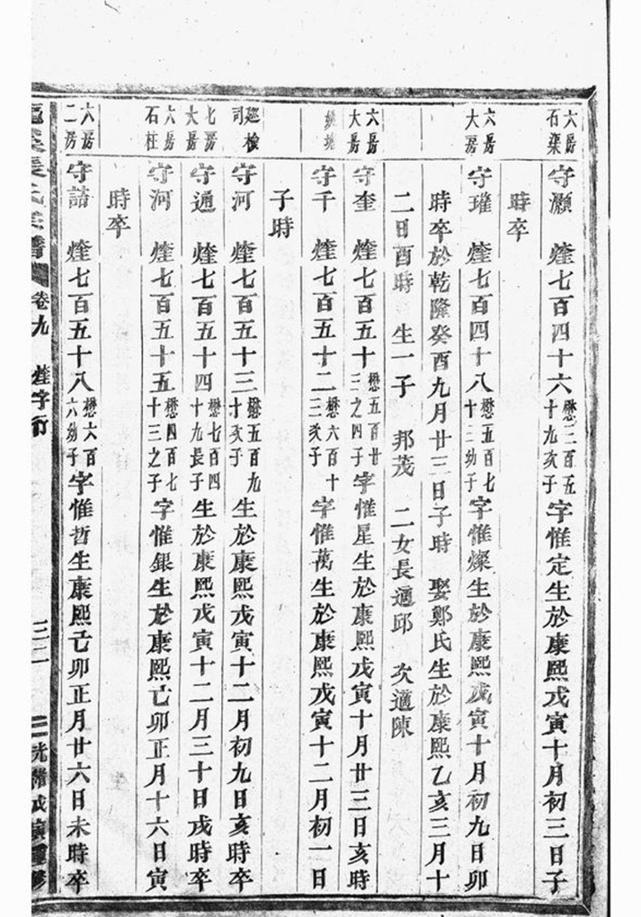 六房石渠 守灝 煃七百四十六 懋三百五十九次子 字惟定生於康熙戊寅十月初三日子
時卒
六房大房 守瓘 煃七百四十八 懋五百七十三幼子 字惟燦生於康熙戊寅十月初九日卯
時卒於乾隆癸酉九月廿三日子時 娶鄭氏生於康熙乙亥三月十
二日酉時 生一子 邦茂 二女長適邱 次適陳
六房大房 守奎 煃七百五十一 懋五百廿三之四子 字惟星生於康熙戊寅十月廿三日亥時
守千 煃七百五十二 懋六百十三次子 字惟萬生於康熙戊寅十二月初一日
子時
巡檢司 守河 煃七百五十三 懋五百九十次子 生於康熙戊寅十二月初九日亥時卒
七房大房 守通 煃七百五十四 懋七百四十九長子 生於康熙戊寅十二月三十日戌時卒
六房石柱 守河 煃七百五十五 懋四百七十三之子 字惟銀生於康熙己卯正月十六日寅
時卒
六房二房 守喆 煃七百五十八 懋六百六幼子 字惟哲生康熙己卯正月廿六日未時卒
氏宗譜 卷九 煃字行 三二 光緒戊寅重修